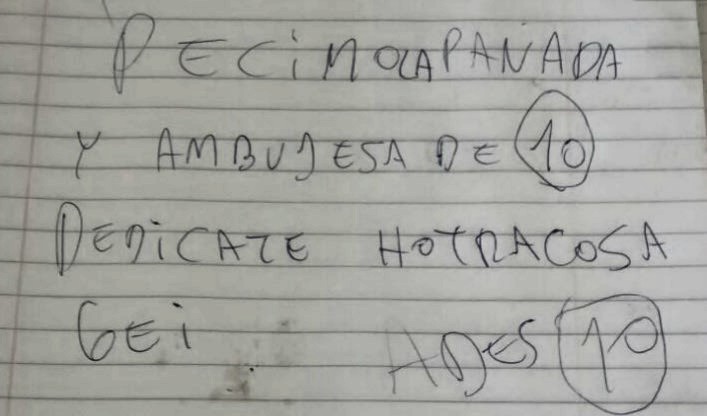 PECIMOLAPANADA
Y AMBUJESA DE 10
DEDICATE HOTRACOSA
GEI ADES 10